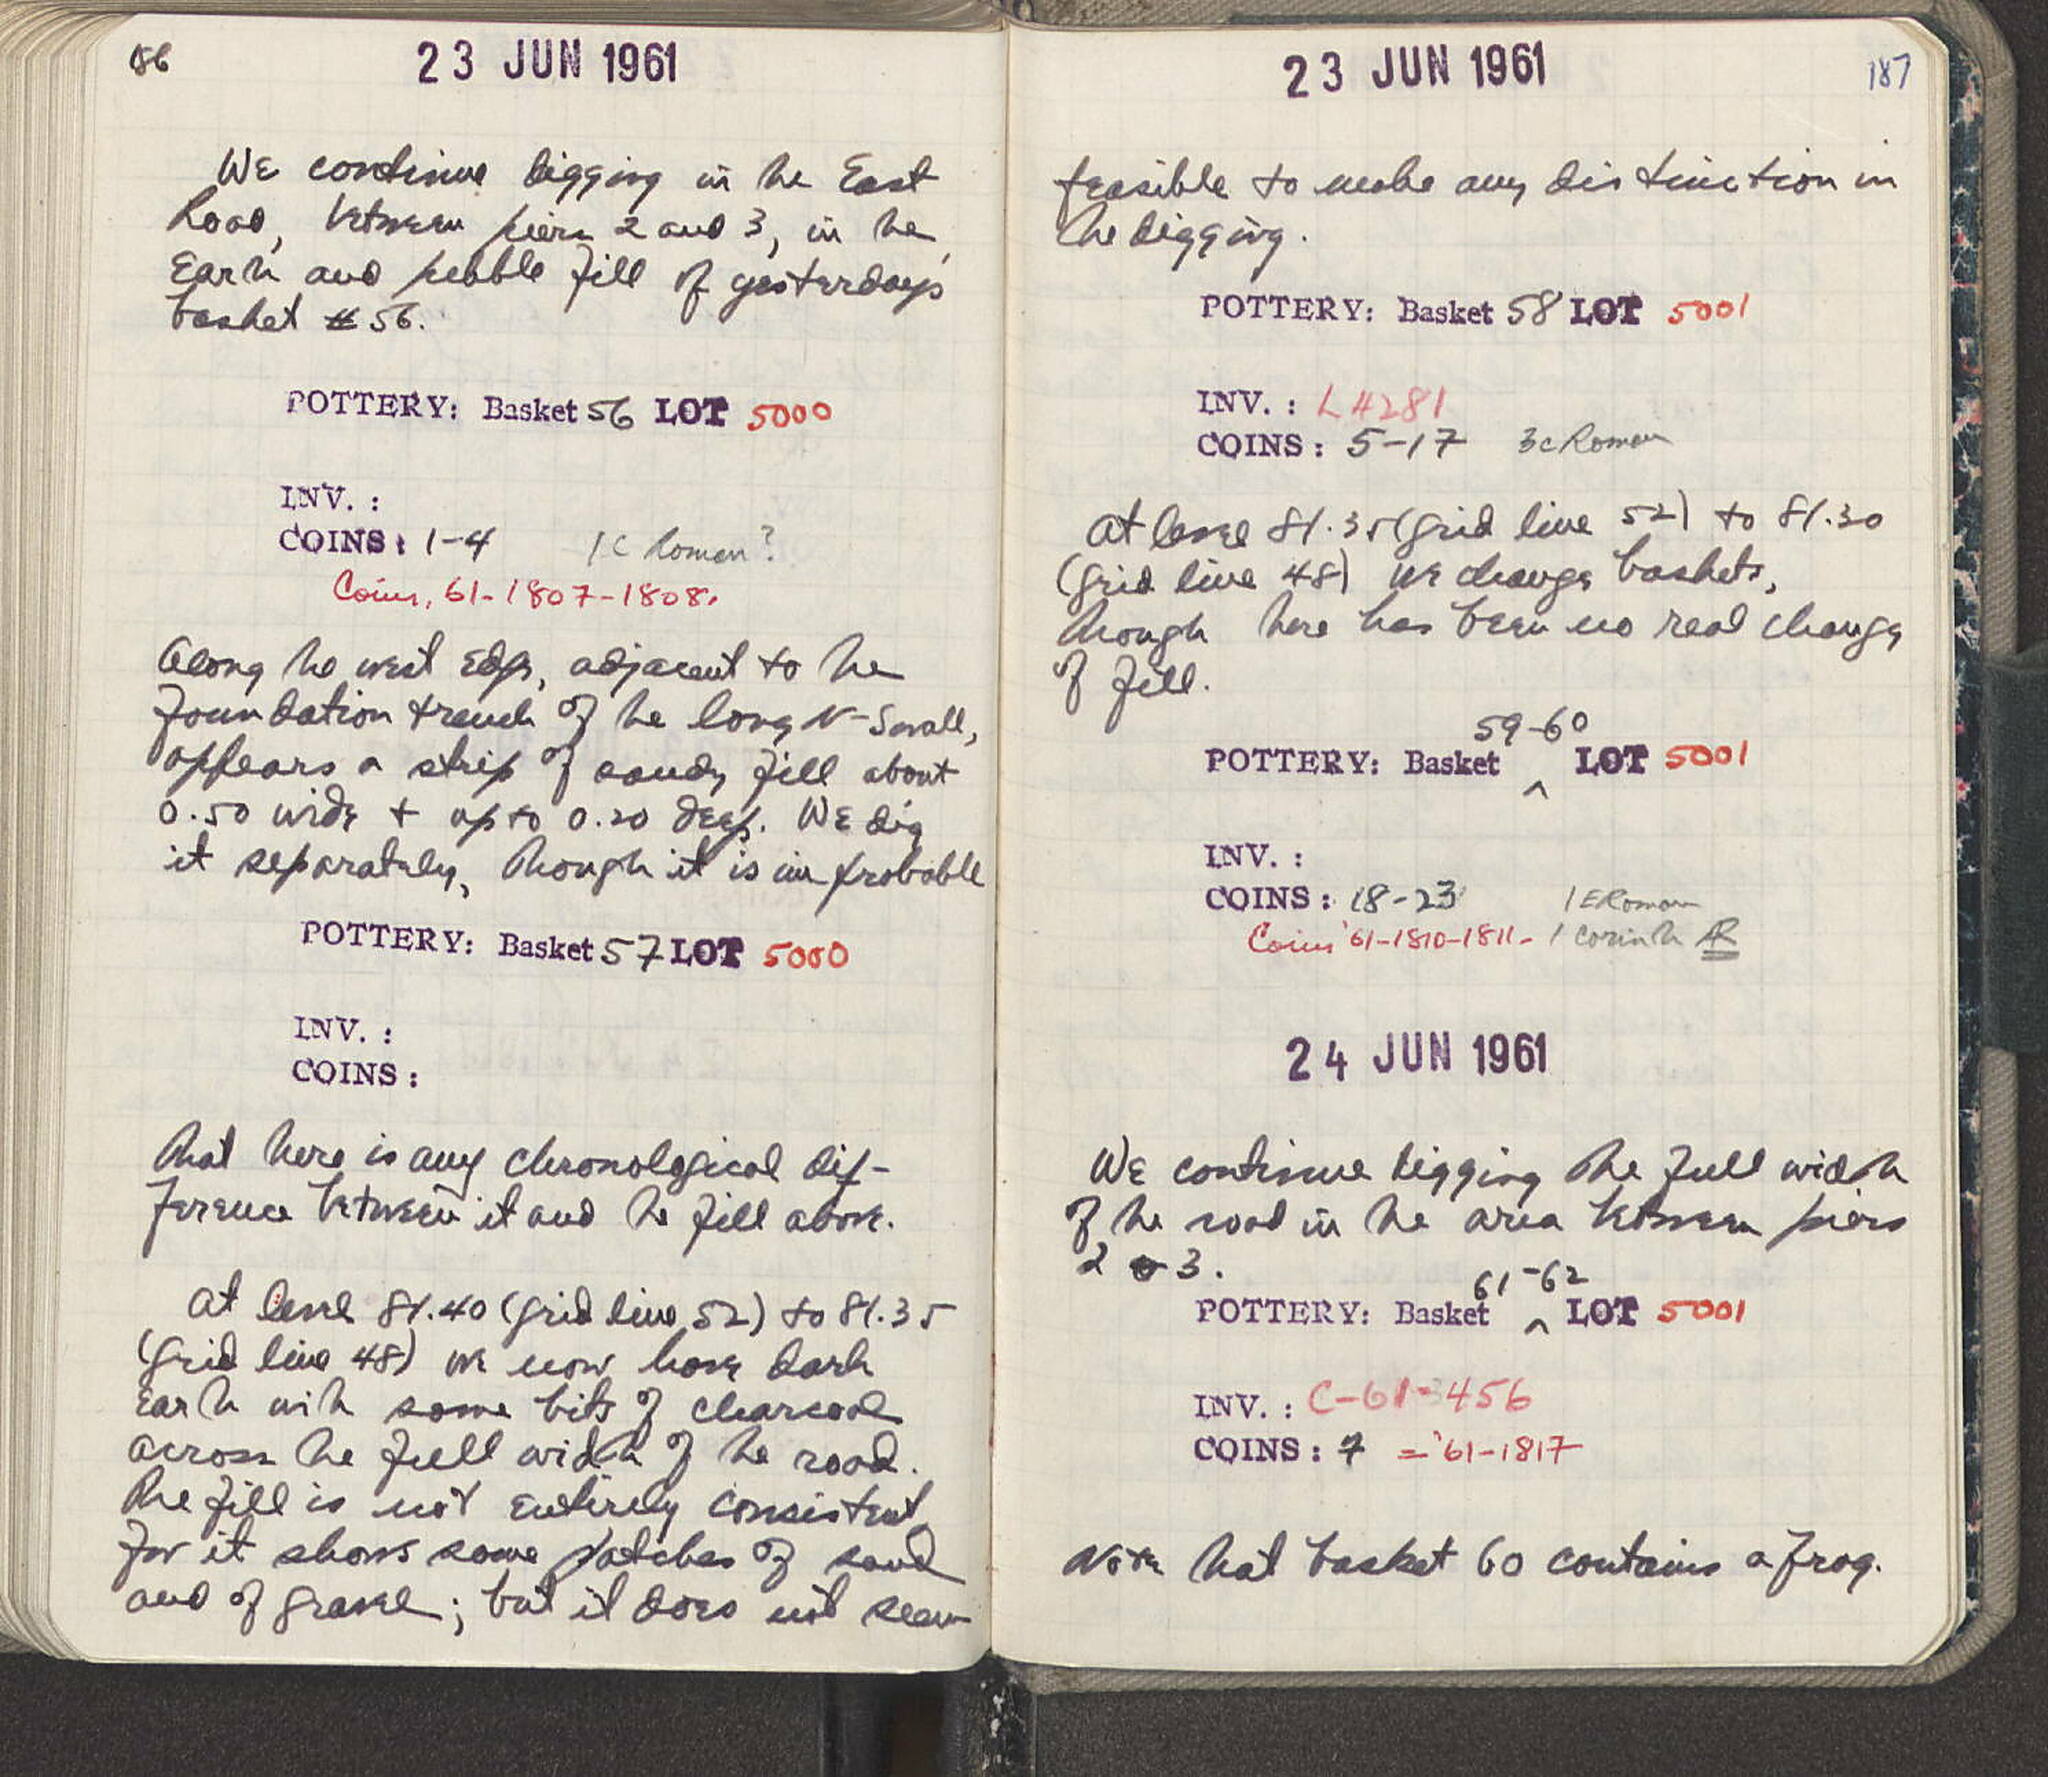 186
23 JUN 1961
We continue digging in the East
Road, between piers 2 and 3, in the
Earth and pebble fill of yesterday's
basket #56.
POTTERY: Basket 56 LOT 5000
INV. :
COINS: 1-4 1C Roman?
Coins, 61-1807-1808.
Along the west Edge, adjacent to the
foundation trench of the long N-S wall,
appears a strip of sandy fill about
0.50 wide + up to 0.20 deep. We dig
it separately, though it is improbable
POTTERY: Basket 57 LOT 5000
INV. :
COINS:
that there is any chronological dif-
ference between it and the fill above.
At level 81.40 (grid line 52) to 81.35
(grid line 48) we now have dark
Earth with some bits of charcoal
across the full width of the road.
The fill is not entirely consistent
for it shows some patches of sand
and of gravel; but it does not seem
23 JUN 1961
187
feasible to make any distinction in
the digging.
POTTERY: Basket 58 LOT 5001
INV. : L 4281
COINS: 5-17 3c Roman
At level 81.35 (grid line 52) to 81.30
(grid line 48) we change baskets,
though there has been no real change
of fill.
59-60
POTTERY: Basket ^ LOT 5001
INV. :
COINS: 18-23 1 E Roman
Coins '61-1810-1811- 1 Corinth AR
24 JUN 1961
We continue digging the full width
of the road in the area between piers
2 & 3.
61-62
POTTERY: Basket ^ LOT 5001
INV. : C-61-456
COINS: 7 = '61-1817
Note that basket 60 contains a frog.